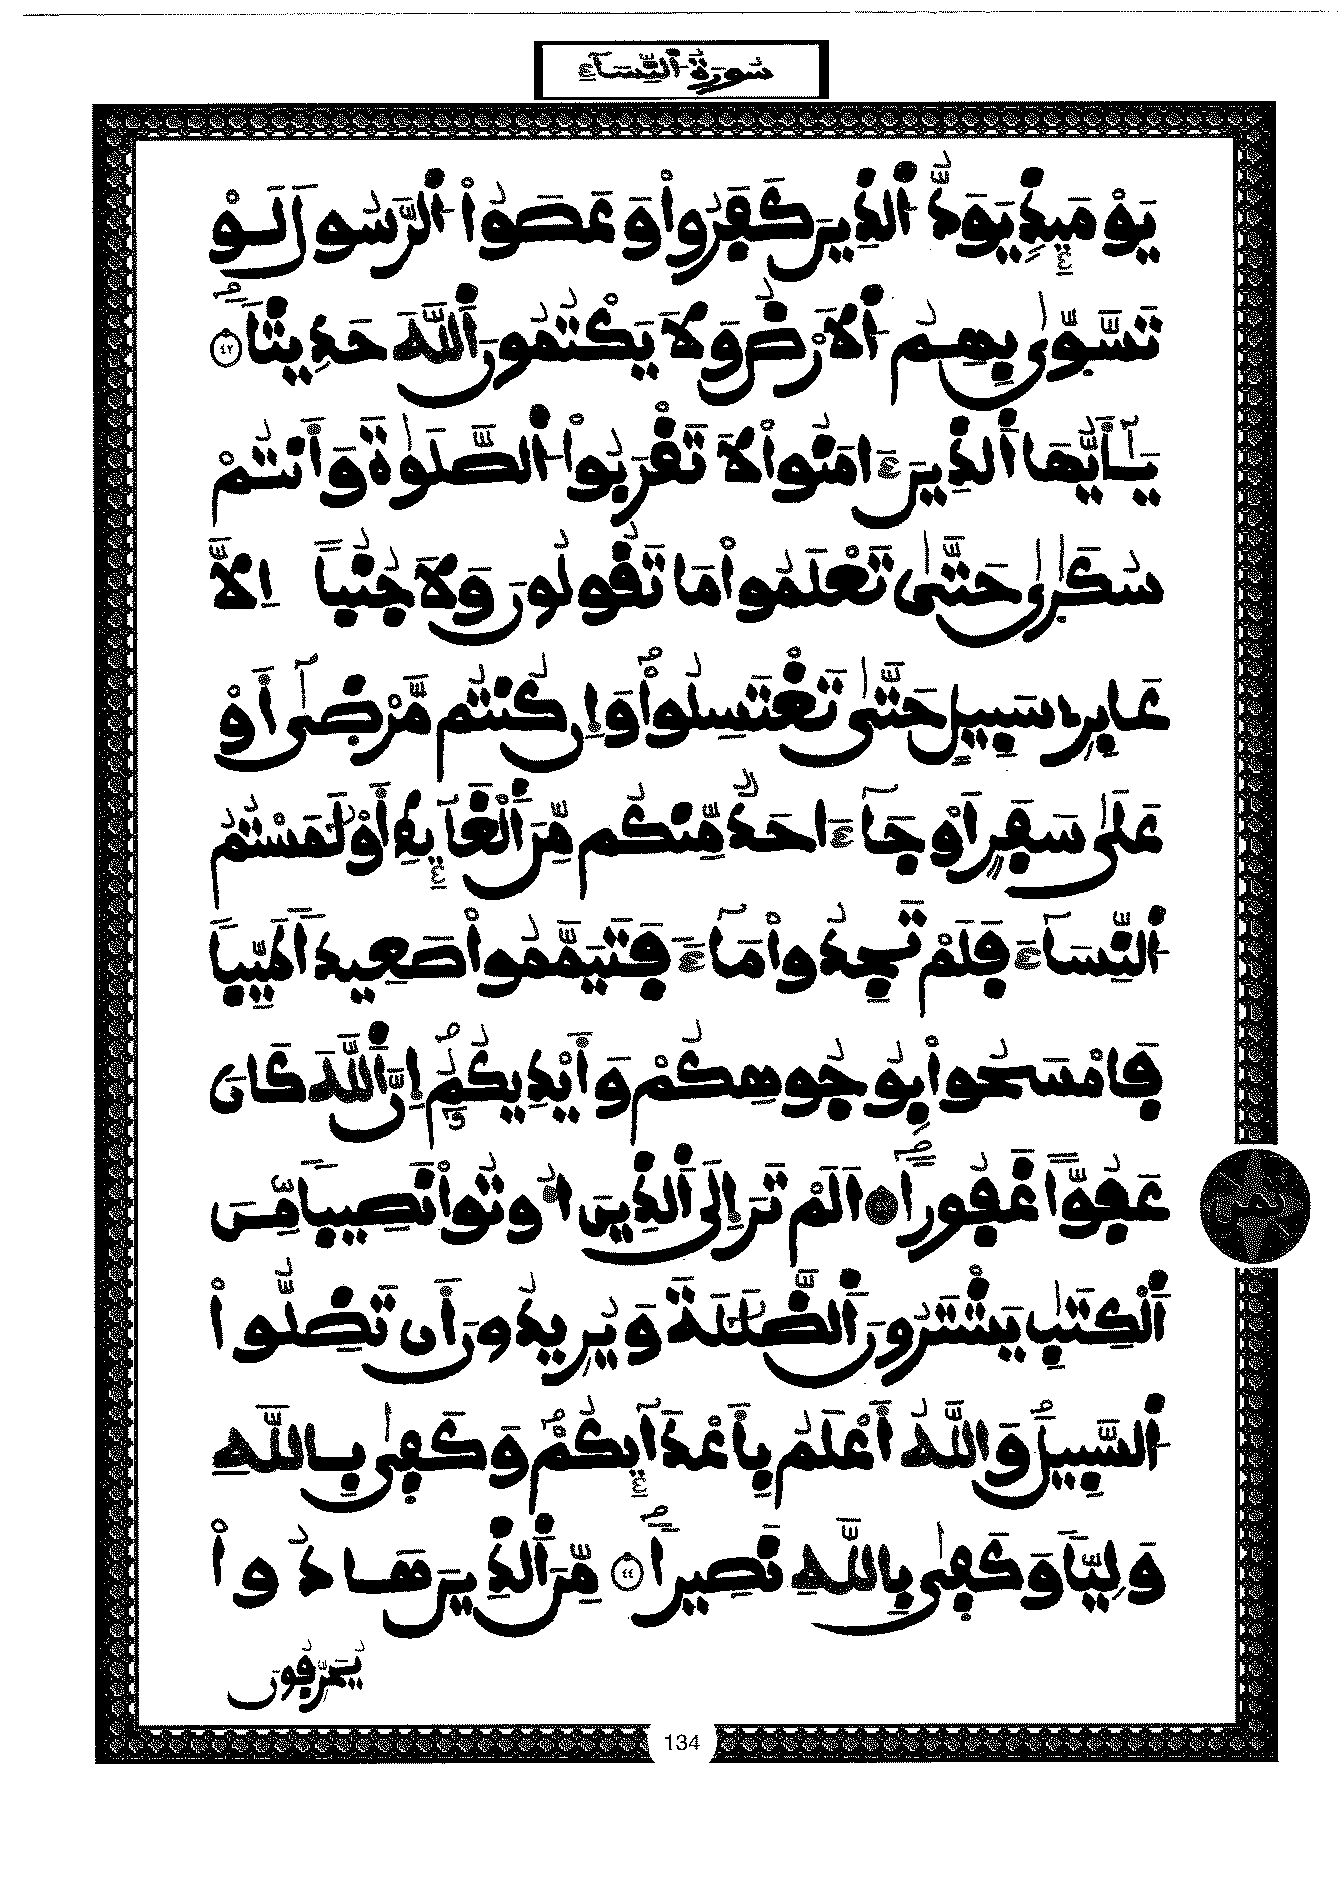 سُورَةُ النِّسَاءِ
يَوْمَئِذٍ يَوَدُّ الذِينَ كَفَرُوا وَعَصَوُا الرَّسُولَ لَوْ
تَسَّوّٰى بِهِمُ الَارْضُ وَلَا يَكْتُمُونَ اللَّهَ حَدِيثاً ٤٢
يَٰأَيُّهَا الذِينَ ءَامَنُوا لَا تَقْرَبُوا الصَّلَوٰةَ وَأَنتُمْ
سُكَٰرٰى حَتَّىٰ تَعْلَمُوا مَا تَقُولُونَ وَلَا جُنُباً اِلَّا
عَابِرِے سَبِيلٍ حَتَّىٰ تَغْتَسِلُوا وَإِن كُنتُم مَّرْضَىٰٓ أَوْ
عَلَىٰ سَفَرٍ اَوْ جَآءَ احَدٌ مِّنكُم مِّنَ ٱلْغَآئِطِ أَوْ لَٰمَسْتُمُ
النِّسَآءَ فَلَمْ تَجِدُوا مَآءً فَتَيَمَّمُوا صَعِيداً طَيِّباً
فَامْسَحُوا بِوُجُوهِكُمْ وَأَيْدِيكُمُ إِنَّ اللَّهَ كَانَ
عَفُوّاً غَفُوراً ٤٣ اَلَمْ تَرَ إِلَى الذِينَ أُوتُوا نَصِيباً مِّنَ
ٱلْكِتَٰبِ يَشْتَرُونَ الضَّلَٰلَةَ وَيُرِيدُونَ أَن تَضِلُّوا
السَّبِيلَ وَاللَّهُ أَعْلَمُ بِأَعْدَآئِكُمْ وَكَفَىٰ بِاللَّهِ
وَلِيّاً وَكَفَىٰ بِاللَّهِ نَصِيراً ٤٤ مِّنَ الذِينَ هَادُوا
يُحَرِّفُونَ
ثمن
134